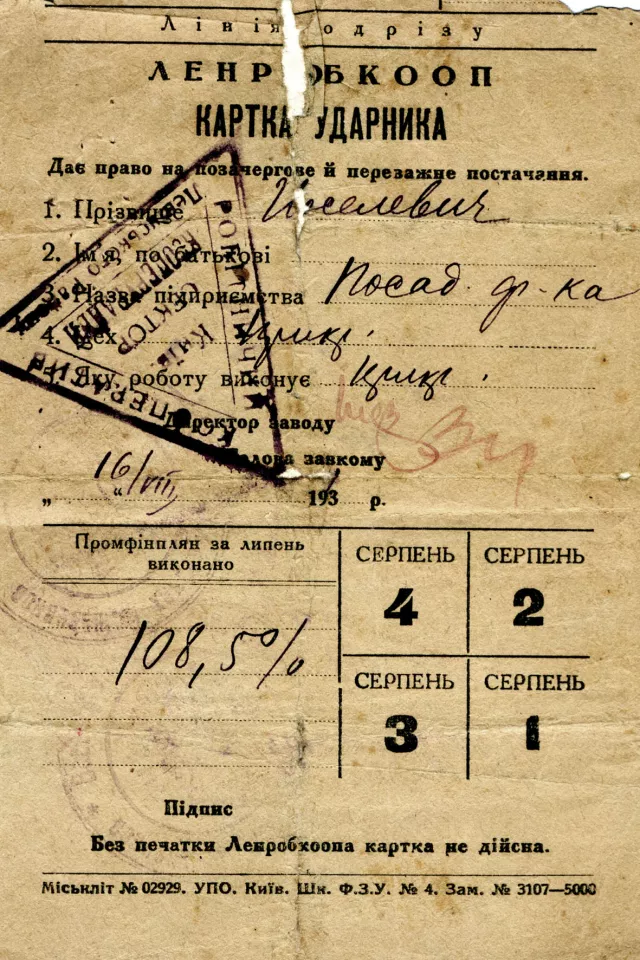 Лінія одрізу
ЛЕНРОБКООП
КАРТКА УДАРНИКА
Дає право на позачергове й переважне постачання.
1. Прізвище Иоселевич
2. Ім'я, по батькові
3. Назва підприємства Посад. ф-ка
4. Цех
5. Яку роботу виконує
Директор заводу
Голова завкому
„ 16/VIII “ 193 р.
Промфінплян за липень
виконано
108,5%
СЕРПЕНЬ
4
СЕРПЕНЬ
2
СЕРПЕНЬ
3
СЕРПЕНЬ
1
РОБІТНИЧИЙ
КООПЕРАТИВ
Ленінського
СЕКТОР
Київ
Підпис
Без печатки Ленробкоопа картка не дійсна.
Міськліт № 02929. УПО. Київ. Шк. Ф.З.У. № 4. Зам. № 3107—5000